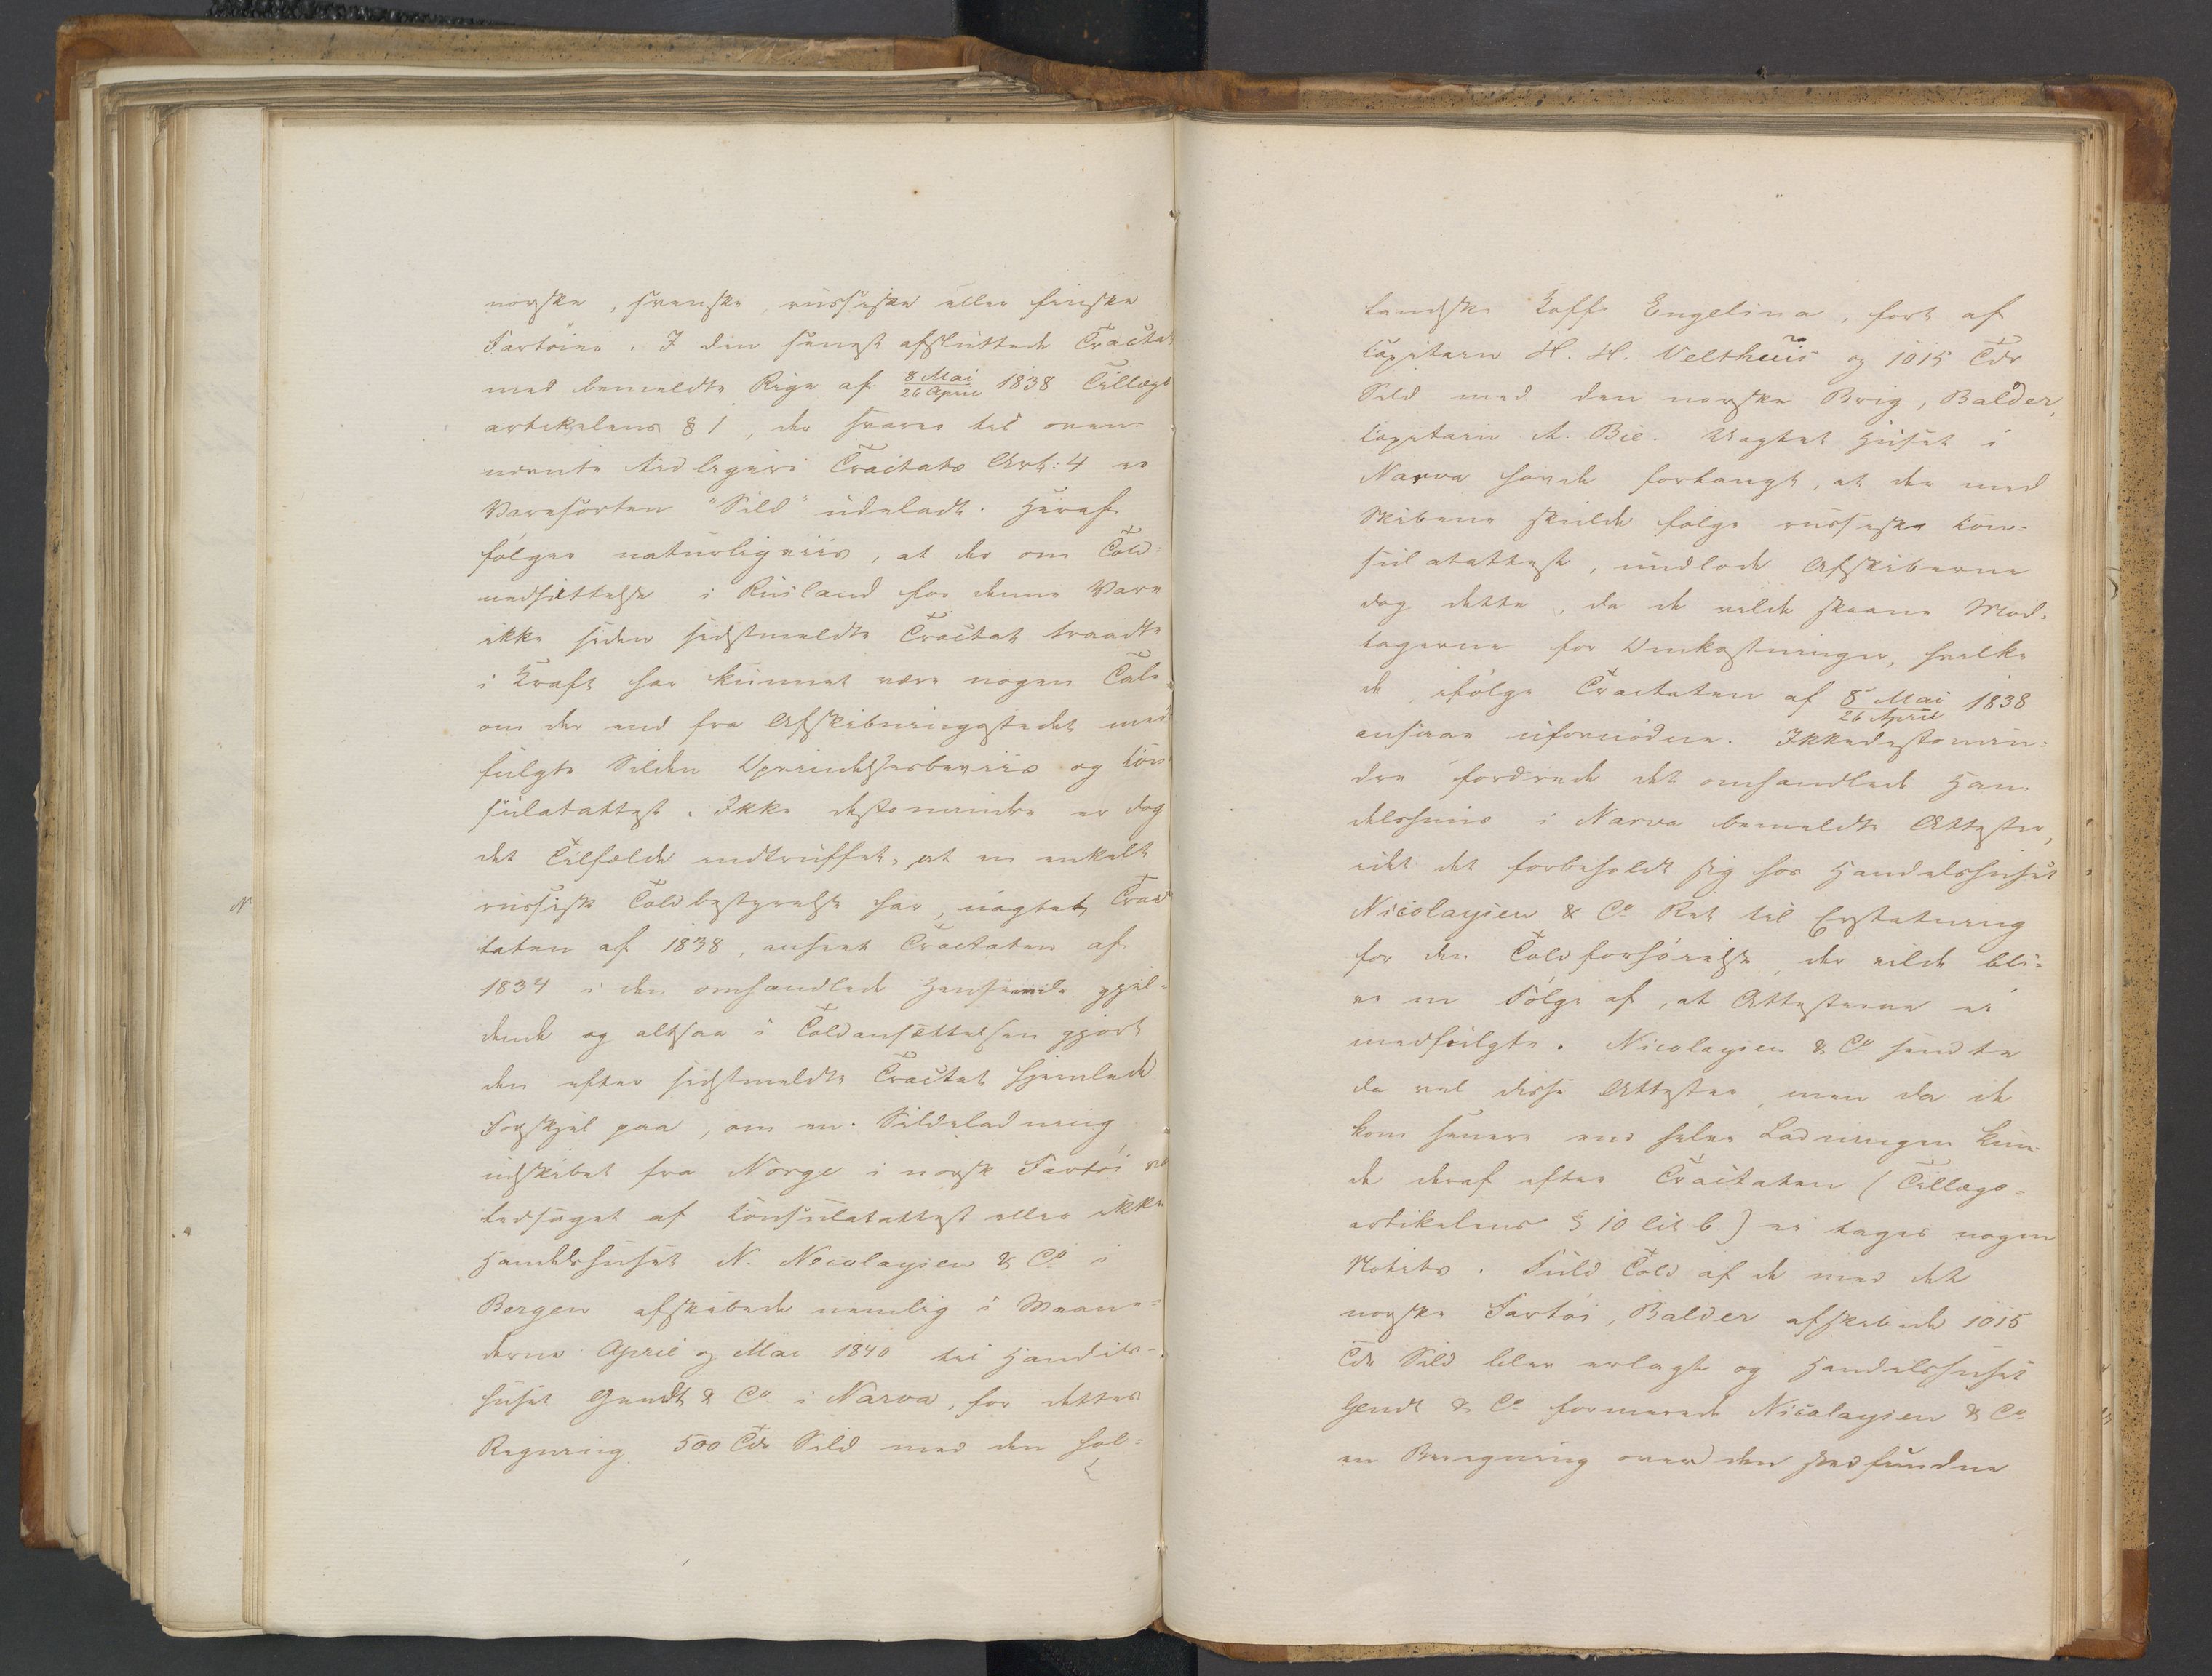 norske, svenske, russiske eller finske
Fartøier. I den senest afsluttede Tractat
med bemeldte Rige af 8 Mai/26 April 1838 Tillægs
artikelens § 1, der svarer til oven-
nævnte tidligere Tractats Art: 4 er
Varesorten "Sild" udeladt. Heraf
følger naturligviis, at der om Told-
nedsættelse i Rusland for denne Vare
ikke siden sidstmeldte Tractat traadte
i Kraft har kunnet være nogen Tale
om der end fra Afskibningsstedet med
fulgte Silden Oprindelsesbeviis og Con
sulatattest. Ikke destomindre er dog
det Tilfælde indtruffet, at en enkelt
russisk Toldbestyrelse har, uagtet Trac
taten af 1838, anseet Tractaten af
1834 i den omhandlede Henseende gjæl-
dende og altsaa i Toldansættelsen gjort
den efter sidstmeldte Tractat hjemlede
Forskjel paa, om en Sildeladning
udskibet fra Norge i norsk Fartøi var
ledsaget af Consulatattest eller ikke
Handelshuset N. Nicolaysen & Co i
Bergen afskibede nemlig i Maane-
derne April og Mai 1840 til Handels-
huset Gendt & Co i Narva, for dettes
Regning 500 Tdr Sild med den hol-
landske Koff Engelina, ført af
Capitain H. H. Velthuis og 1015 Tdr
Sild med den norske Brig, Balder,
Capitain A. Bie. Uagtet Huset i
Narva havde forlangt, at der med
Skibene skulde følge russiske Con-
sulatattest, undlode Afskiberne
dog dette, da de vilde skaane Mod-
tagerne for Omkostninger, hvilke
de, ifølge Tractaten af 8 Mai/26 April 1838
ansaae ufornødne. Ikkedestomin-
dre fordrede det omhandlede Han-
delshuus i Narva bemeldte Attester,
idet det forbeholdt sig hos Handelshuset
Nicolaysen & Co Ret til Erstatning
for den Toldforhøielse, der vilde bli-
ve en Følge af, at Attesterne ei
medfulgte. Nicolaysen & Co sendte
da vel disse Attester, men da de
kom senere end selve Ladningen kun-
de deraf efter Tractaten (Tillægs-
artikelens § 10 lit b) ei tages nogen
Notits. Fuld Told af de med det
norske Fartøi, Balder afskibede 1015
Tdr Sild blev erlagt og Handelshuset
Gendt & Co formerede Nicolaysen & Co
en Beregning over den stedfundne